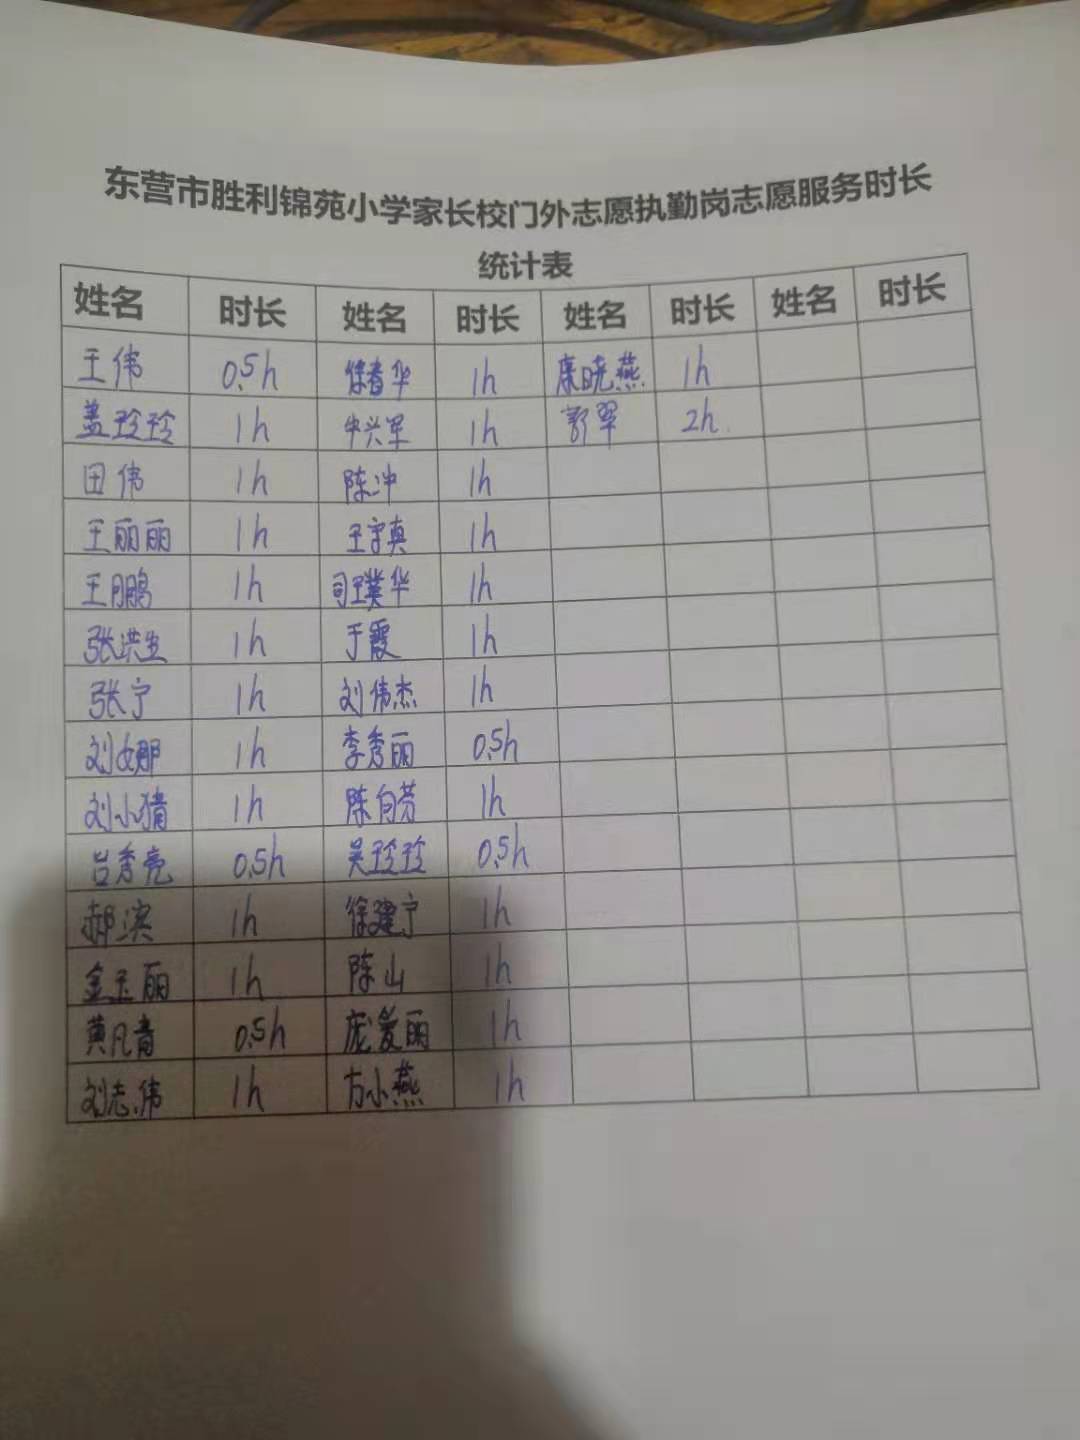 东营市胜利锦苑小学家长校门外志愿执勤岗志愿服务时长
统计表
姓名 时长 姓名 时长 姓名 时长 姓名 时长
王伟 0.5h 徐春华 1h 康晓燕 1h
盖玲玲 1h 牛兴军 1h 郭翠 2h
田伟 1h 陈冲 1h
王丽丽 1h 王守真 1h
王鹏 1h 1h
张洪生 1h 于霞 1h
张宁 1h 刘伟杰 1h
刘娜 1h 李秀丽 0.5h
刘小猜 1h 陈向芳 1h
吕秀亮 0.5h 吴玲玲 0.5h
郝滨 1h 徐建宁 1h
金玉丽 1h 陈山 1h
黄凡青 0.5h 庞爱丽 1h
刘志伟 1h 方小燕 1h